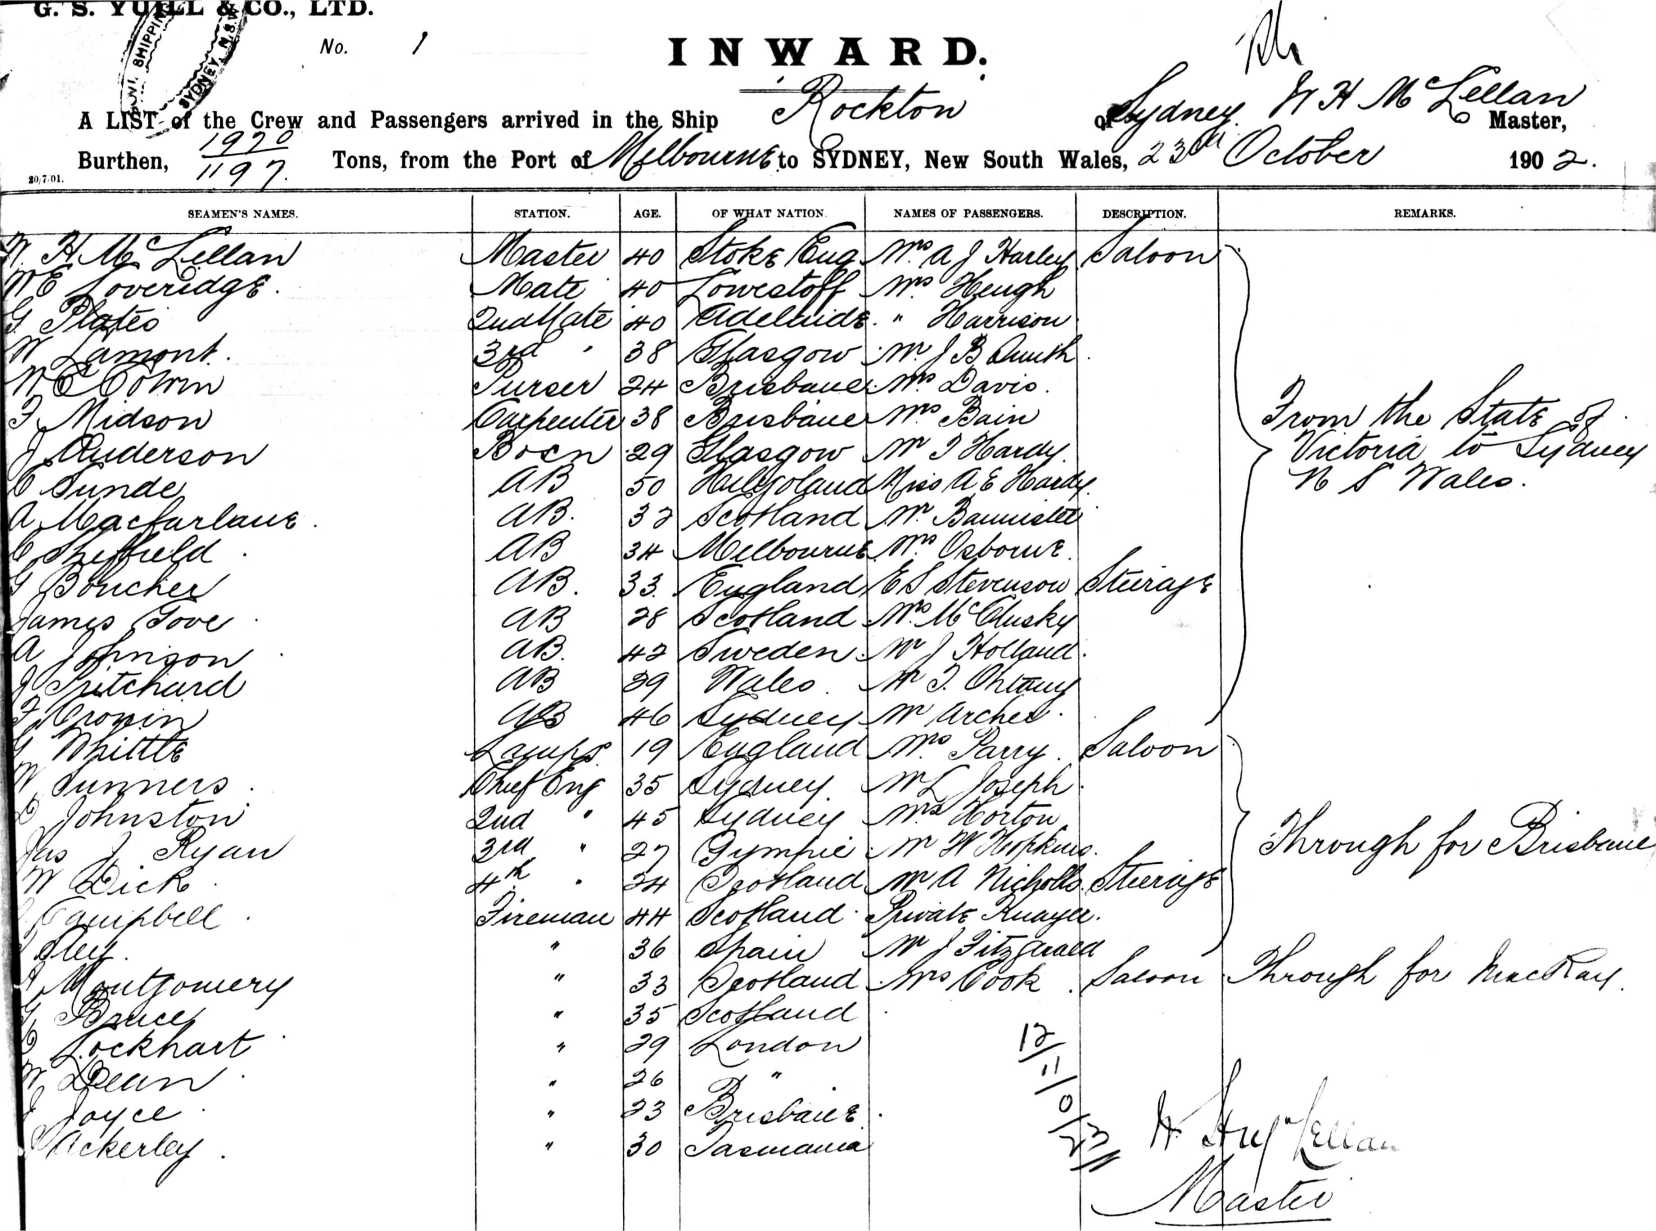 G. S. YUILL & CO., LTD.
SHIPPING
SYDNEY, N.S.W.
No. 1
INWARD.
A LIST of the Crew and Passengers arrived in the Ship Rockton of Sydney, W H McLellan Master,
Burthen, 1970 / 1197. Tons, from the Port of Melbourne to SYDNEY, New South Wales, 23rd October 1902.
20/7/01.
SEAMEN'S NAMES. STATION. AGE. OF WHAT NATION. NAMES OF PASSENGERS. DESCRIPTION. REMARKS.
W. H. McLellan Master 40 Stoke Eng Mrs A J Harley Saloon
W E Loveridge. Mate 40 Lowestoff Mrs Heugh
G Plates 2nd Mate 40 Adelaide. " Harrison
W Lamont. 3rd " 38 Glasgow Mr J B Smith
W C Colvin Purser 24 Brisbane Mrs Davis.
F Midson Carpenter 38 Brisbane Mrs Bain From the State of
J Anderson Bosn 29 Glasgow Mr T Hardy. Victoria to Sydney
C Sunde AB 50 Heligoland Miss A E Hardy. N S Wales.
A Macfarlane. AB. 32 Scotland Mr Bannister
C Sheffield AB 34 Melbourne Mrs Osborne.
G Boucher AB. 33. England E S Stevenson Steerage
James Gove AB 28 Scotland Mrs McClusky
A Johnson AB. 42 Sweden. Mr J Holland.
J Pritchard AB 39 Wales. Mr T.
F. Cronin AB 46 Sydney Mr Archer.
G Whittle Lamps 19 England Mrs Parry. Saloon
W Sunners. Chief Eng 35 Sydney Mr L Joseph.
D Johnston 2nd " 45 Sydney. Mrs Horton
Jas J Ryan 3rd " 27 Gympie Mr W Hopkins. Through for Brisbane
W Dick 4th " 24 Scotland Mr A Nicholls Steerage
Campbell. Fireman 44 Scotland. Private
" 36 Spain Mr J Fitzgerald
Montgomery " 33 Scotland Mrs Cook. Saloon Through for MacKay.
G Bruce " 35 Scotland
C Lockhart " 29 London
W Dean. " 26 "
J Joyce. " 23 Brisbane.
Ackerley. " 30 Tasmania
12/11/0
W H McLellan
Master